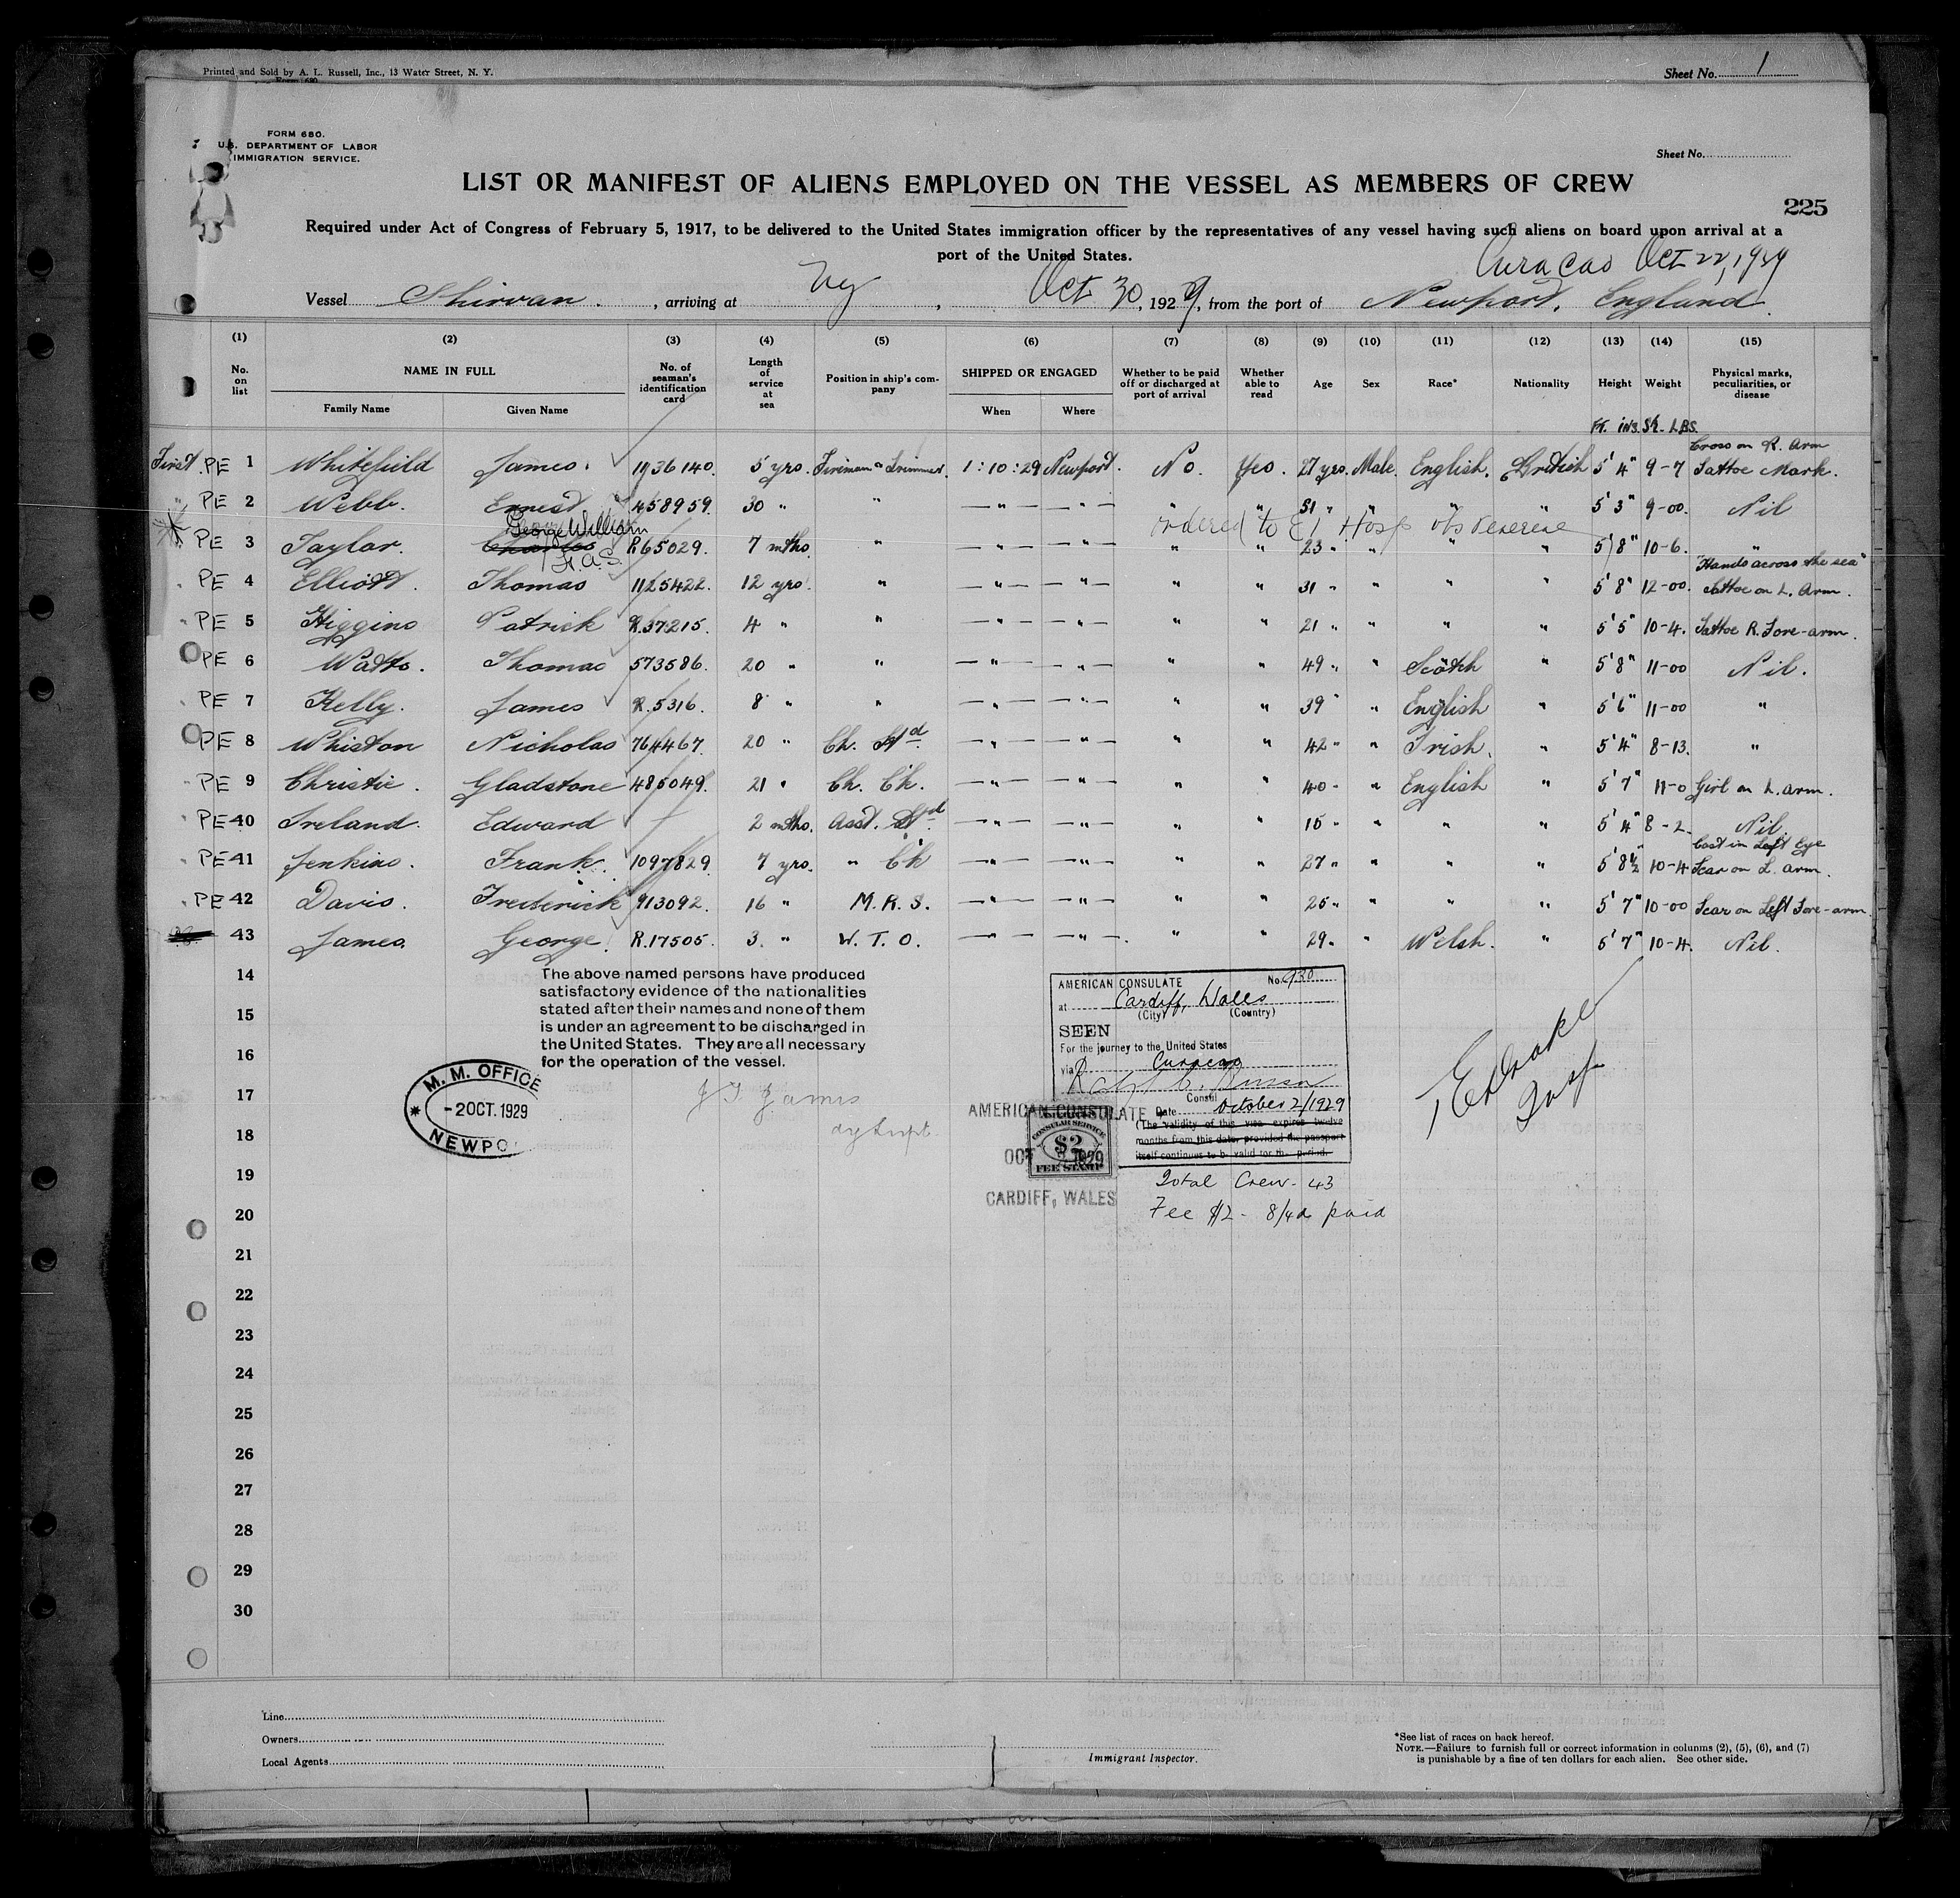 Printed and Sold by A. L. Russell, Inc., 13 Water Street, N. Y.
Sheet No. 1
FORM 680.
U.S. DEPARTMENT OF LABOR
IMMIGRATION SERVICE.
Sheet No.
LIST OR MANIFEST OF ALIENS EMPLOYED ON THE VESSEL AS MEMBERS OF CREW
225
Required under Act of Congress of February 5, 1917, to be delivered to the United States immigration officer by the representatives of any vessel having such aliens on board upon arrival at a
port of the United States.
Curacao Oct 22, 1929
Vessel Shirvan, arriving at Ny, Oct 30, 1929, from the port of Newport, England.
(1) (2) (3) (4) (5) (6) (7) (8) (9) (10) (11) (12) (13) (14) (15)
No. on list
NAME IN FULL
Family Name Given Name
No. of seaman's identification card
Length of service at sea
Position in ship's company
SHIPPED OR ENGAGED
When Where
Whether to be paid off or discharged at port of arrival
Whether able to read
Age
Sex
Race*
Nationality
Height
Weight
Physical marks, peculiarities, or disease
Ft. ins. St. LBS.
Cross on R. Arm
First PE 1 Whitefield James. 1936140. 5 yrs. Fireman & Trimmer. 1:10:29 Newport. No. Yes. 27 yrs. Male. English. British 5' 4" 9-7 Tattoe Mark.
" PE 2 Webb. Ernest 458959. 30 " " " " " " 51 " " " " 5' 3" 9-00. Nil
George William
ordered to E I Hosp obs venereal
PE 3 Taylor. Charles R65029. 7 mths. " " " " " 23 " " " " 5' 8" 10-6. "
H.A.S.
"Hands across the sea"
PE 4 Elliott. Thomas 1125422. 12 yrs. " " " " " 31 " " " " 5' 8" 12-00. Tattoe on L. Arm.
PE 5 Higgins Patrick R.37215. 4 " " " " " " 21 " " " " 5' 5" 10-4. Tattoe R. Fore-arm.
PE 6 Watts. Thomas 573586. 20 " " " " " " 49 " " Scotch " 5' 8" 11-00 Nil.
PE 7 Kelly. James R.5316. 8 " " " " " " 39 " " English " 5' 6" 11-00 "
PE 8 Whiston Nicholas 764467. 20 " Ch. Std. " " " " 42 " " Irish. " 5' 4" 8-13. "
PE 9 Christie. Gladstone 485049. 21 " Ch. Ck. " " " " 40 " " English " 5' 7" 11-0 Girl on L. arm.
PE 40 Ireland. Edward 2 mths. Asst. Std. " " " " 15 " " " " 5' 4" 8-2. Nil.
Cast in Left Eye
PE 41 Jenkins. Frank. 1097829. 7 yrs. " Ck " " " " 27 " " " " 5' 8½ 10-4 Scar on L. arm.
PE 42 Davis. Frederick 913092. 16 " M. R. S. " " " " 25 " " " " 5' 7" 10-00 Scar on Left Fore-arm.
43 James. George. R.17505. 3. " W. T. O. " " " " 29 " " Welsh. " 5' 7" 10-4. Nil.
14
The above named persons have produced
satisfactory evidence of the nationalities
stated after their names and none of them
is under an agreement to be discharged in
the United States. They are all necessary
for the operation of the vessel.
15
16
17
18
19
20
21
22
23
24
25
26
27
28
29
30
M. M. OFFICE
-2 OCT. 1929
NEWPO
J T James
Dy Supt.
AMERICAN CONSULATE No. 930
at Cardiff, Wales
(City) (Country)
SEEN
For the journey to the United States
via Curacao
Consul
Date October 2/1929
(The validity of this visa expires twelve
months from this date, provided the passport
itself continues to be valid for the period.
AMERICAN CONSULATE
CONSULAR SERVICE
$2
FEE STAMP
OCT 2 1929
CARDIFF, WALES
Total Crew - 43
Fee $2 - 8/4d paid
Line
Owners
Local Agents
Immigrant Inspector.
*See list of races on back hereof.
NOTE.—Failure to furnish full or correct information in columns (2), (5), (6), and (7)
is punishable by a fine of ten dollars for each alien. See other side.